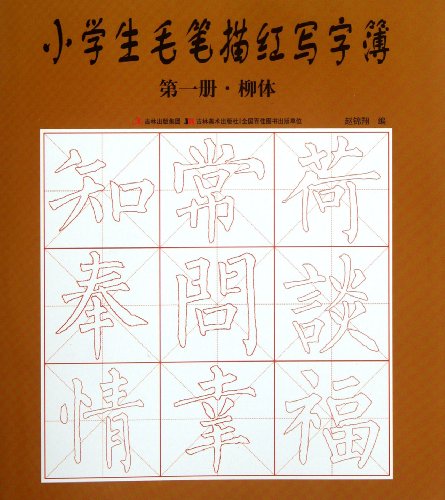 小学生毛笔描红写字簿
第一册·柳体
吉林出版集团 吉林美术出版社|全国百佳图书出版单位 赵锦翔 编
知常荷
奉問談
情幸福